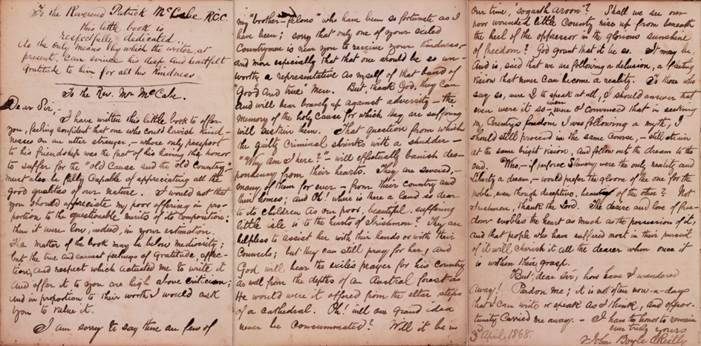 To the Reverend Patrick McCabe R.C.C.
this little book is
respectfully dedicated.
As the only means by which the writer at
present, can evince his deep and heartfelt
gratitude to him for all his kindness.
To the Rev. Mr McCabe.
Dear Sir,
I have written this little book to offer
you, feeling confident that one who could lavish kind-
nesses on an utter stranger, whose only passport
to his friendship was the fact of his having the honor
to suffer for the "old cause and the old Country,"
must also be fully capable of appreciating all the
good qualities of our nature. I would not that
you should appreciate my poor offering in pro-
portion to the questionable merits of its composition;
then it were low, indeed, in your estimation.
The matter of the book may be below mediocrity;
but the true and earnest feelings of gratitude, affec-
tion, and respect which actuated me to write it
and offer it to you are high above criticism;
and in proportion to their worth I would ask
you to value it.
I am sorry to say there are few of
my brother-felons who have been so fortunate as I
have been; sorry that only one of your exiled
Countrymen is near you to receive your kindness,
and more especially that that one should be so un-
worthy a representative as myself of that band of
Good and true Men. But thank God, they can
and will bear bravely up against adversity — the
memory of the holy cause for which they are suffering
will sustain them. That question from which
the guilty Criminal shrinks with a shudder —
"Why am I here?" — will effectually banish des-
pondency from their hearts. They are severed,
many of them for ever, from their Country and
their homes; and Oh! where is there a land so dear
to its children as our poor, beautiful, suffering
little isle is to the hearts of Irishmen? They are
helpless to assist her with their hands or with their
Counsels; but they can still pray for her, and
God will hear the exiles prayer for his country
as well from the depths of an Austral forest as
He would were it offered from the altar steps
of a Cathedral. Oh! will our grand idea
never be consummated? Will it be in
Our time, 'Sogarth aroon'? Shall we see our
poor wounded little Country rise up from beneath
the heel of the oppressor in the glorious sunshine
of freedom? God grant that it be so. It may be,
and is, said that we are following a delusion, a fleeting
vision that never can become a reality. To those who
say so, were I to speak at all, I should answer that
even were it so — were I convinced that in seeking
my Country's freedom I was following a myth, I
should still proceed in the same course, — still strain
at the same bright vision, and follow out the dream to the
end. Who — if before Slavery were the only reality and
Liberty a dream, — would prefer the gloom of the one for the
noble, even though deceptive, beauty of the other? Not
Irishmen, thank the Lord. The desire and love of free-
dom ennobles the heart as much as the possession of it;
and that people who have suffered most in their pursuit
of it will cherish it all the dearer when once it
is within their grasp.
But, dear Sir, how have I wandered
away! Pardon me; it is not often now-a-days
that I can write or speak as I think, and oppor-
tunity carried me away. — I have the honor to remain
ever truly yours
John Boyle O'Reilly
5th April, 1868.